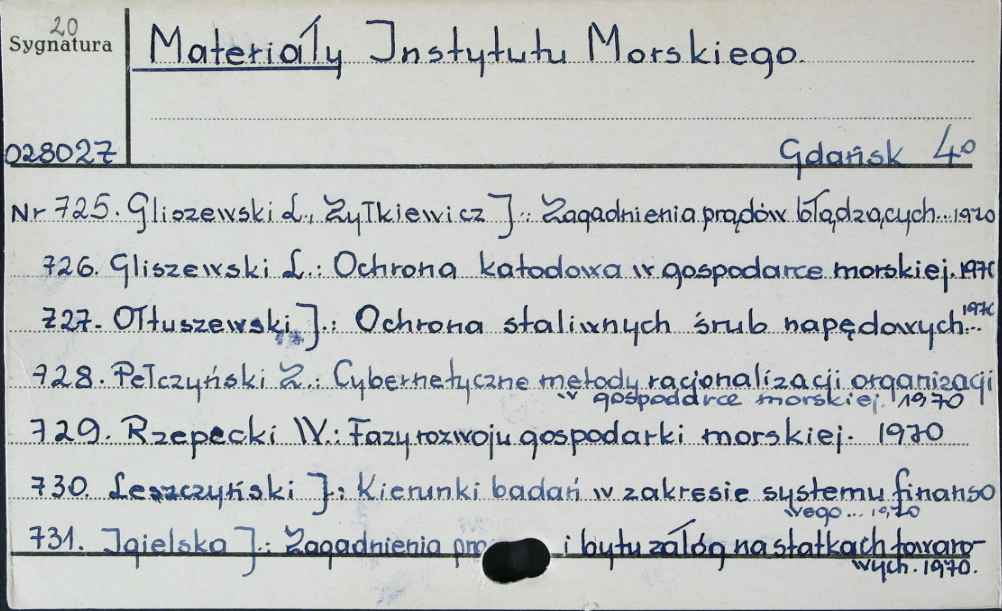 20
Sygnatura
Materiały Instytutu Morskiego.
028027
Gdańsk 4°
Nr 725. Gliszewski L., Żyłkiewicz J.: Zagadnienia prądów błądzących... 1970
726. Gliszewski L.: Ochrona katodowa w gospodarce morskiej. 1970
727. Ołtuszewski J.: Ochrona staliwnych śrub napędowych... 1970
728. Pełczyński Z.: Cybernetyczne metody racjonalizacji organizacji
w gospodarce morskiej. 1970
729. Rzepecki W.: Fazy rozwoju gospodarki morskiej. 1970
730. Leszczyński J.: Kierunki badań w zakresie systemu finanso
wego... 1970
731. Igielska J.: Zagadnienia i bytu załóg na statkach towaro-
wych. 1970.